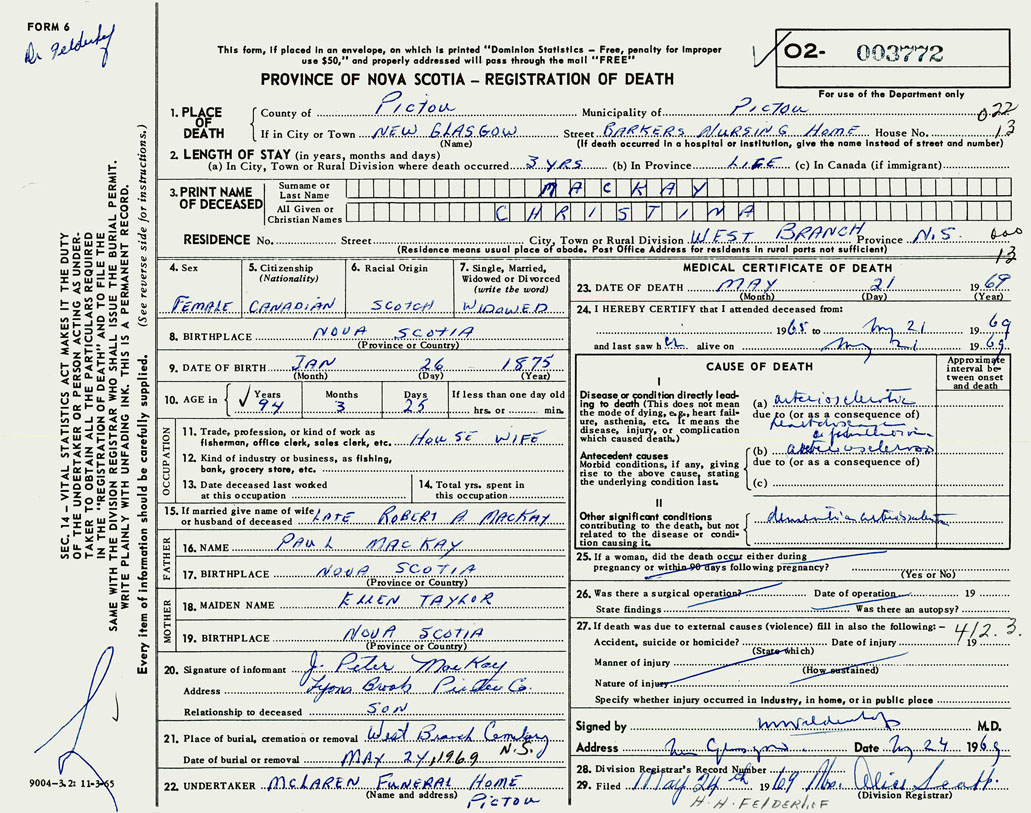 FORM 6
Dr Felderhof
This form, if placed in an envelope, on which is printed "Dominion Statistics – Free, penalty for improper
use $50," and properly addressed will pass through the mail "FREE"
PROVINCE OF NOVA SCOTIA – REGISTRATION OF DEATH
02- 003772
For use of the Department only
022
13
1. PLACE OF DEATH
County of PICTOU Municipality of PICTOU
If in City or Town NEW GLASGOW Street BARKERS NURSING HOME House No.
(Name) (If death occurred in a hospital or institution, give the name instead of street and number)
2. LENGTH OF STAY (in years, months and days)
(a) In City, Town or Rural Division where death occurred 3 YRS (b) In Province LIFE (c) In Canada (if immigrant)
3. PRINT NAME OF DECEASED
Surname or Last Name MACKAY
All Given or Christian Names CHRISTINA
RESIDENCE No. Street City, Town or Rural Division WEST BRANCH Province N.S.
(Residence means usual place of abode. Post Office Address for residents in rural parts not sufficient)
000
13
4. Sex FEMALE
5. Citizenship (Nationality) CANADIAN
6. Racial Origin SCOTCH
7. Single, Married, Widowed or Divorced (write the word) WIDOWED
8. BIRTHPLACE NOVA SCOTIA
(Province or Country)
9. DATE OF BIRTH JAN 26 1875
(Month) (Day) (Year)
10. AGE in Years 94 Months 3 Days 25 If less than one day old hrs. or min.
OCCUPATION
11. Trade, profession, or kind of work as
fisherman, office clerk, sales clerk, etc. HOUSE WIFE
12. Kind of industry or business, as fishing,
bank, grocery store, etc.
13. Date deceased last worked
at this occupation
14. Total yrs. spent in
this occupation
15. If married give name of wife
or husband of deceased LATE ROBERT A. MACKAY
FATHER
16. NAME PAUL MACKAY
17. BIRTHPLACE NOVA SCOTIA
(Province or Country)
MOTHER
18. MAIDEN NAME ELLEN TAYLOR
19. BIRTHPLACE NOVA SCOTIA
(Province or Country)
20. Signature of informant J. Peter MacKay
Address Lyons Brook Pictou Co.
Relationship to deceased SON
21. Place of burial, cremation or removal West Branch Cemetery N.S.
Date of burial or removal MAY 24, 1969
22. UNDERTAKER MCLAREN FUNERAL HOME
(Name and address) PICTOU
MEDICAL CERTIFICATE OF DEATH
23. DATE OF DEATH MAY 21 1969
(Month) (Day) (Year)
24. I HEREBY CERTIFY that I attended deceased from:
1965 to May 21 1969
and last saw her alive on May 21 1969
CAUSE OF DEATH
Approximate interval between onset and death
I
Disease or condition directly lead-
ing to death (This does not mean
the mode of dying, e.g., heart fail-
ure, asthenia, etc. It means the
disease, injury, or complication
which caused death.)
(a) arteriosclerotic
due to (or as a consequence of)
heart disease
Antecedent causes
Morbid conditions, if any, giving
rise to the above cause, stating
the underlying condition last.
(b) arteriosclerosis
due to (or as a consequence of)
(c)
II
Other significant conditions
contributing to the death, but not
related to the disease or condi-
tion causing it.
dementia
25. If a woman, did the death occur either during
pregnancy or within 90 days following pregnancy?
(Yes or No)
26. Was there a surgical operation? Date of operation 19
State findings Was there an autopsy?
27. If death was due to external causes (violence) fill in also the following: –
412.3.
Accident, suicide or homicide? Date of injury 19
(State which)
Manner of injury
(How sustained)
Nature of injury
Specify whether injury occurred in Industry, in home, or in public place
Signed by M.D.
Address New Glasgow Date May 24 1969
28. Division Registrar's Record Number
29. Filed May 24th 1969 Mrs. Alice Scott
(Division Registrar)
H. H. FELDERHOF
SEC. 14 – VITAL STATISTICS ACT MAKES IT THE DUTY
OF THE UNDERTAKER OR PERSON ACTING AS UNDER-
TAKER TO OBTAIN ALL THE PARTICULARS REQUIRED
IN THE "REGISTRATION OF DEATH" AND TO FILE THE
SAME WITH THE DIVISION REGISTRAR WHO SHALL ISSUE THE BURIAL PERMIT.
WRITE PLAINLY WITH UNFADING INK. THIS IS A PERMANENT RECORD.
Every item of information should be carefully supplied. (See reverse side for instructions.)
9004-3.2: 11-3-65